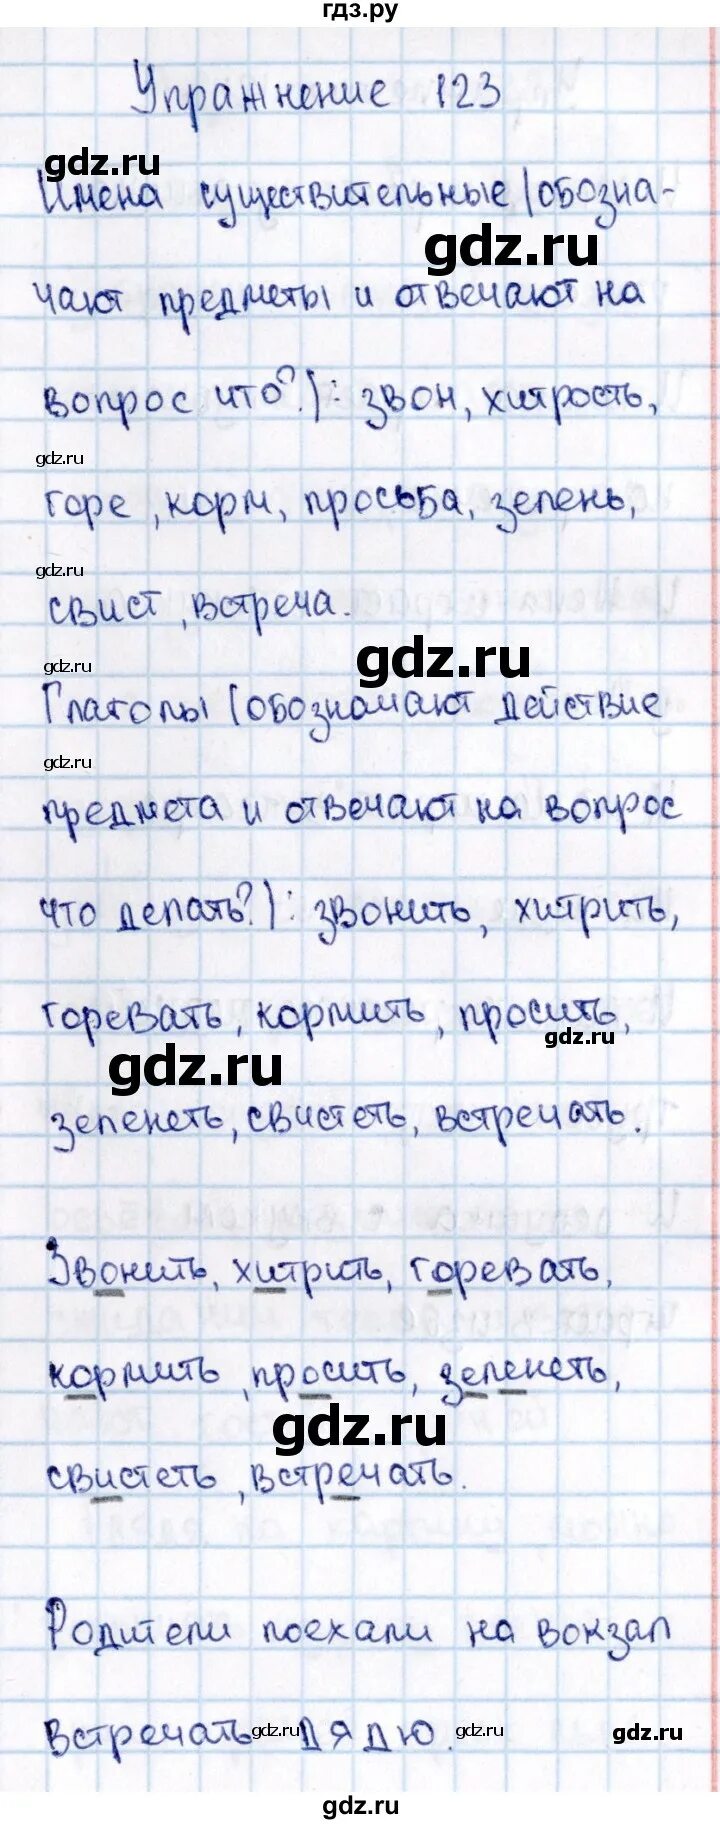 гдз.ру
Упражнение 123
gdz.ru
Имена существительные (обозна-
gdz.ru
чают предметы и отвечают на
вопрос что?): звон, хитрость,
gdz.ru
горе, корм, просьба, зелень,
gdz.ru
свист, встреча.
gdz.ru
gdz.ru
Глаголы (обозначают действие
gdz.ru
предмета и отвечают на вопрос
что делать?): звонить, хитрить,
горевать, кормить, просить,
gdz.ru
gdz.ru
зеленеть, свистеть, встречать.
Звонить, хитрить, горевать,
кормить, просить, зеленеть,
gdz.ru
свистеть, встречать.
Родители поехали на вокзал
встречать дядю.
gdz.ru
gdz.ru
gdz.ru
gdz.ru